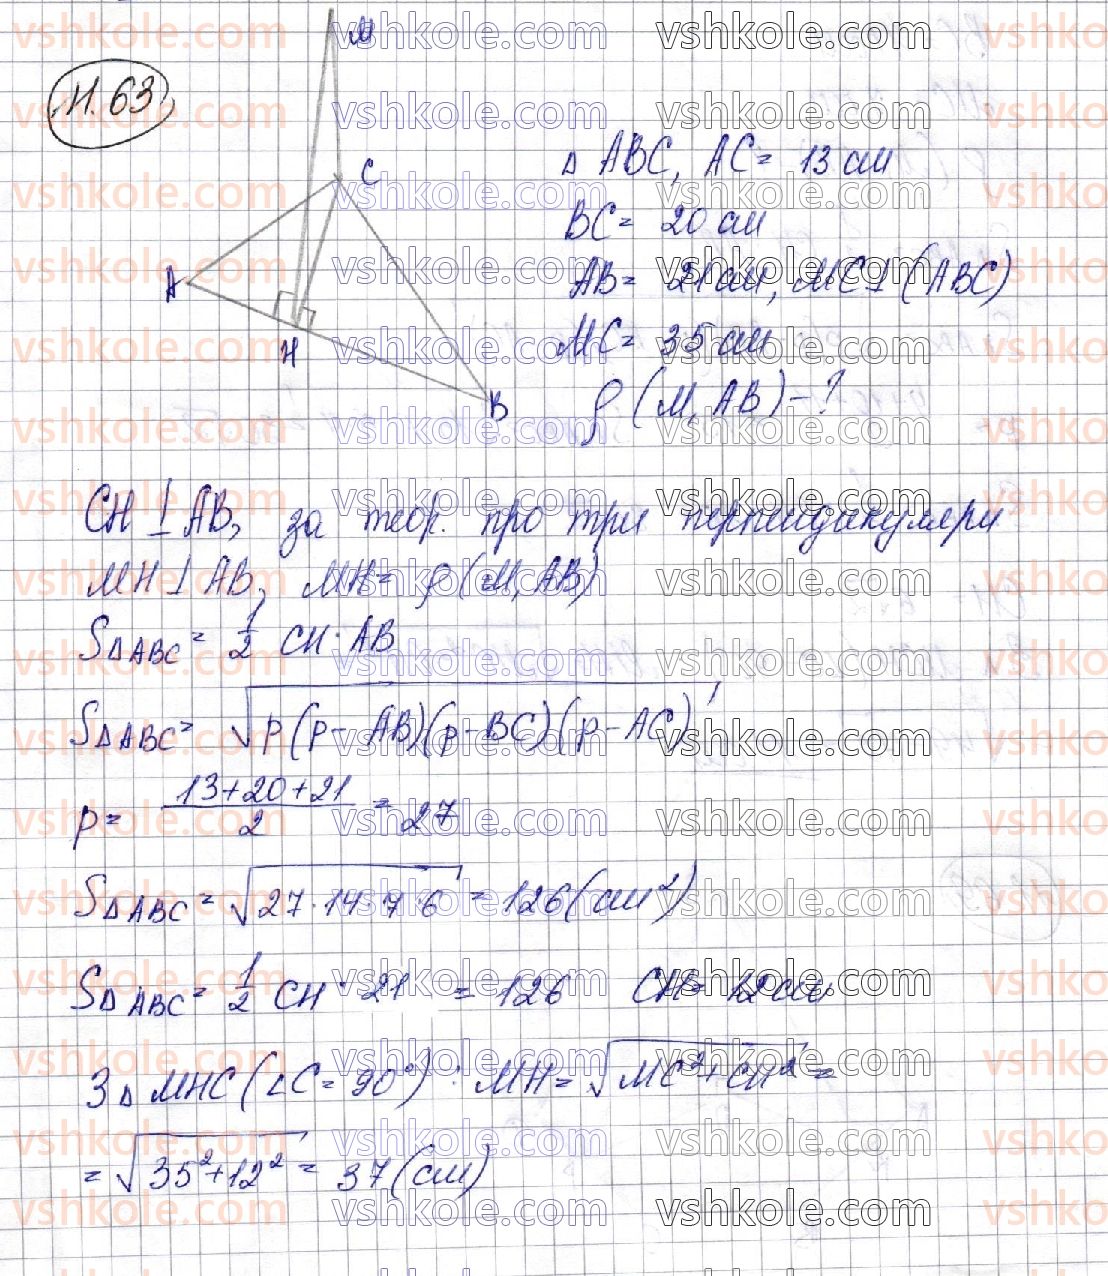 11.63
M
C
A
H
B
Δ ABC, AC = 13 см
BC = 20 см
AB = 21 см, MC ⊥ (ABC)
MC = 35 см
ρ (M, AB) - ?
CH ⊥ AB, за теор. про три перпендикуляри
MH ⊥ AB, MH = ρ (M, AB)
SΔABC = 1/2 CH · AB
SΔABC = √(p(p - AB)(p - BC)(p - AC))
p = (13+20+21)/2 = 27
SΔABC = √(27·14·7·6) = 126 (см²)
SΔABC = 1/2 CH · 21 = 126 CH = 12 см
З Δ MHC (∠C = 90°) : MH = √(MC² + CH²) =
= √(35² + 12²) = 37 (см)
vshkole.com